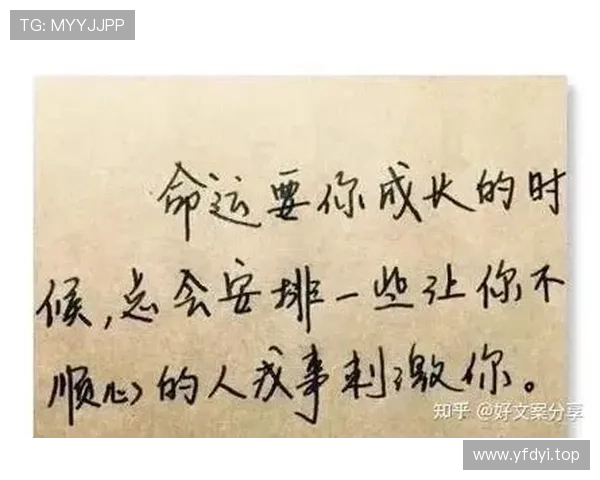 TG: MYYJJPP
命运要你成长的时
候,总会安排一些让你不
顺心的人或事刺激你。
知乎 @好文案分享
www.yfdyi.top